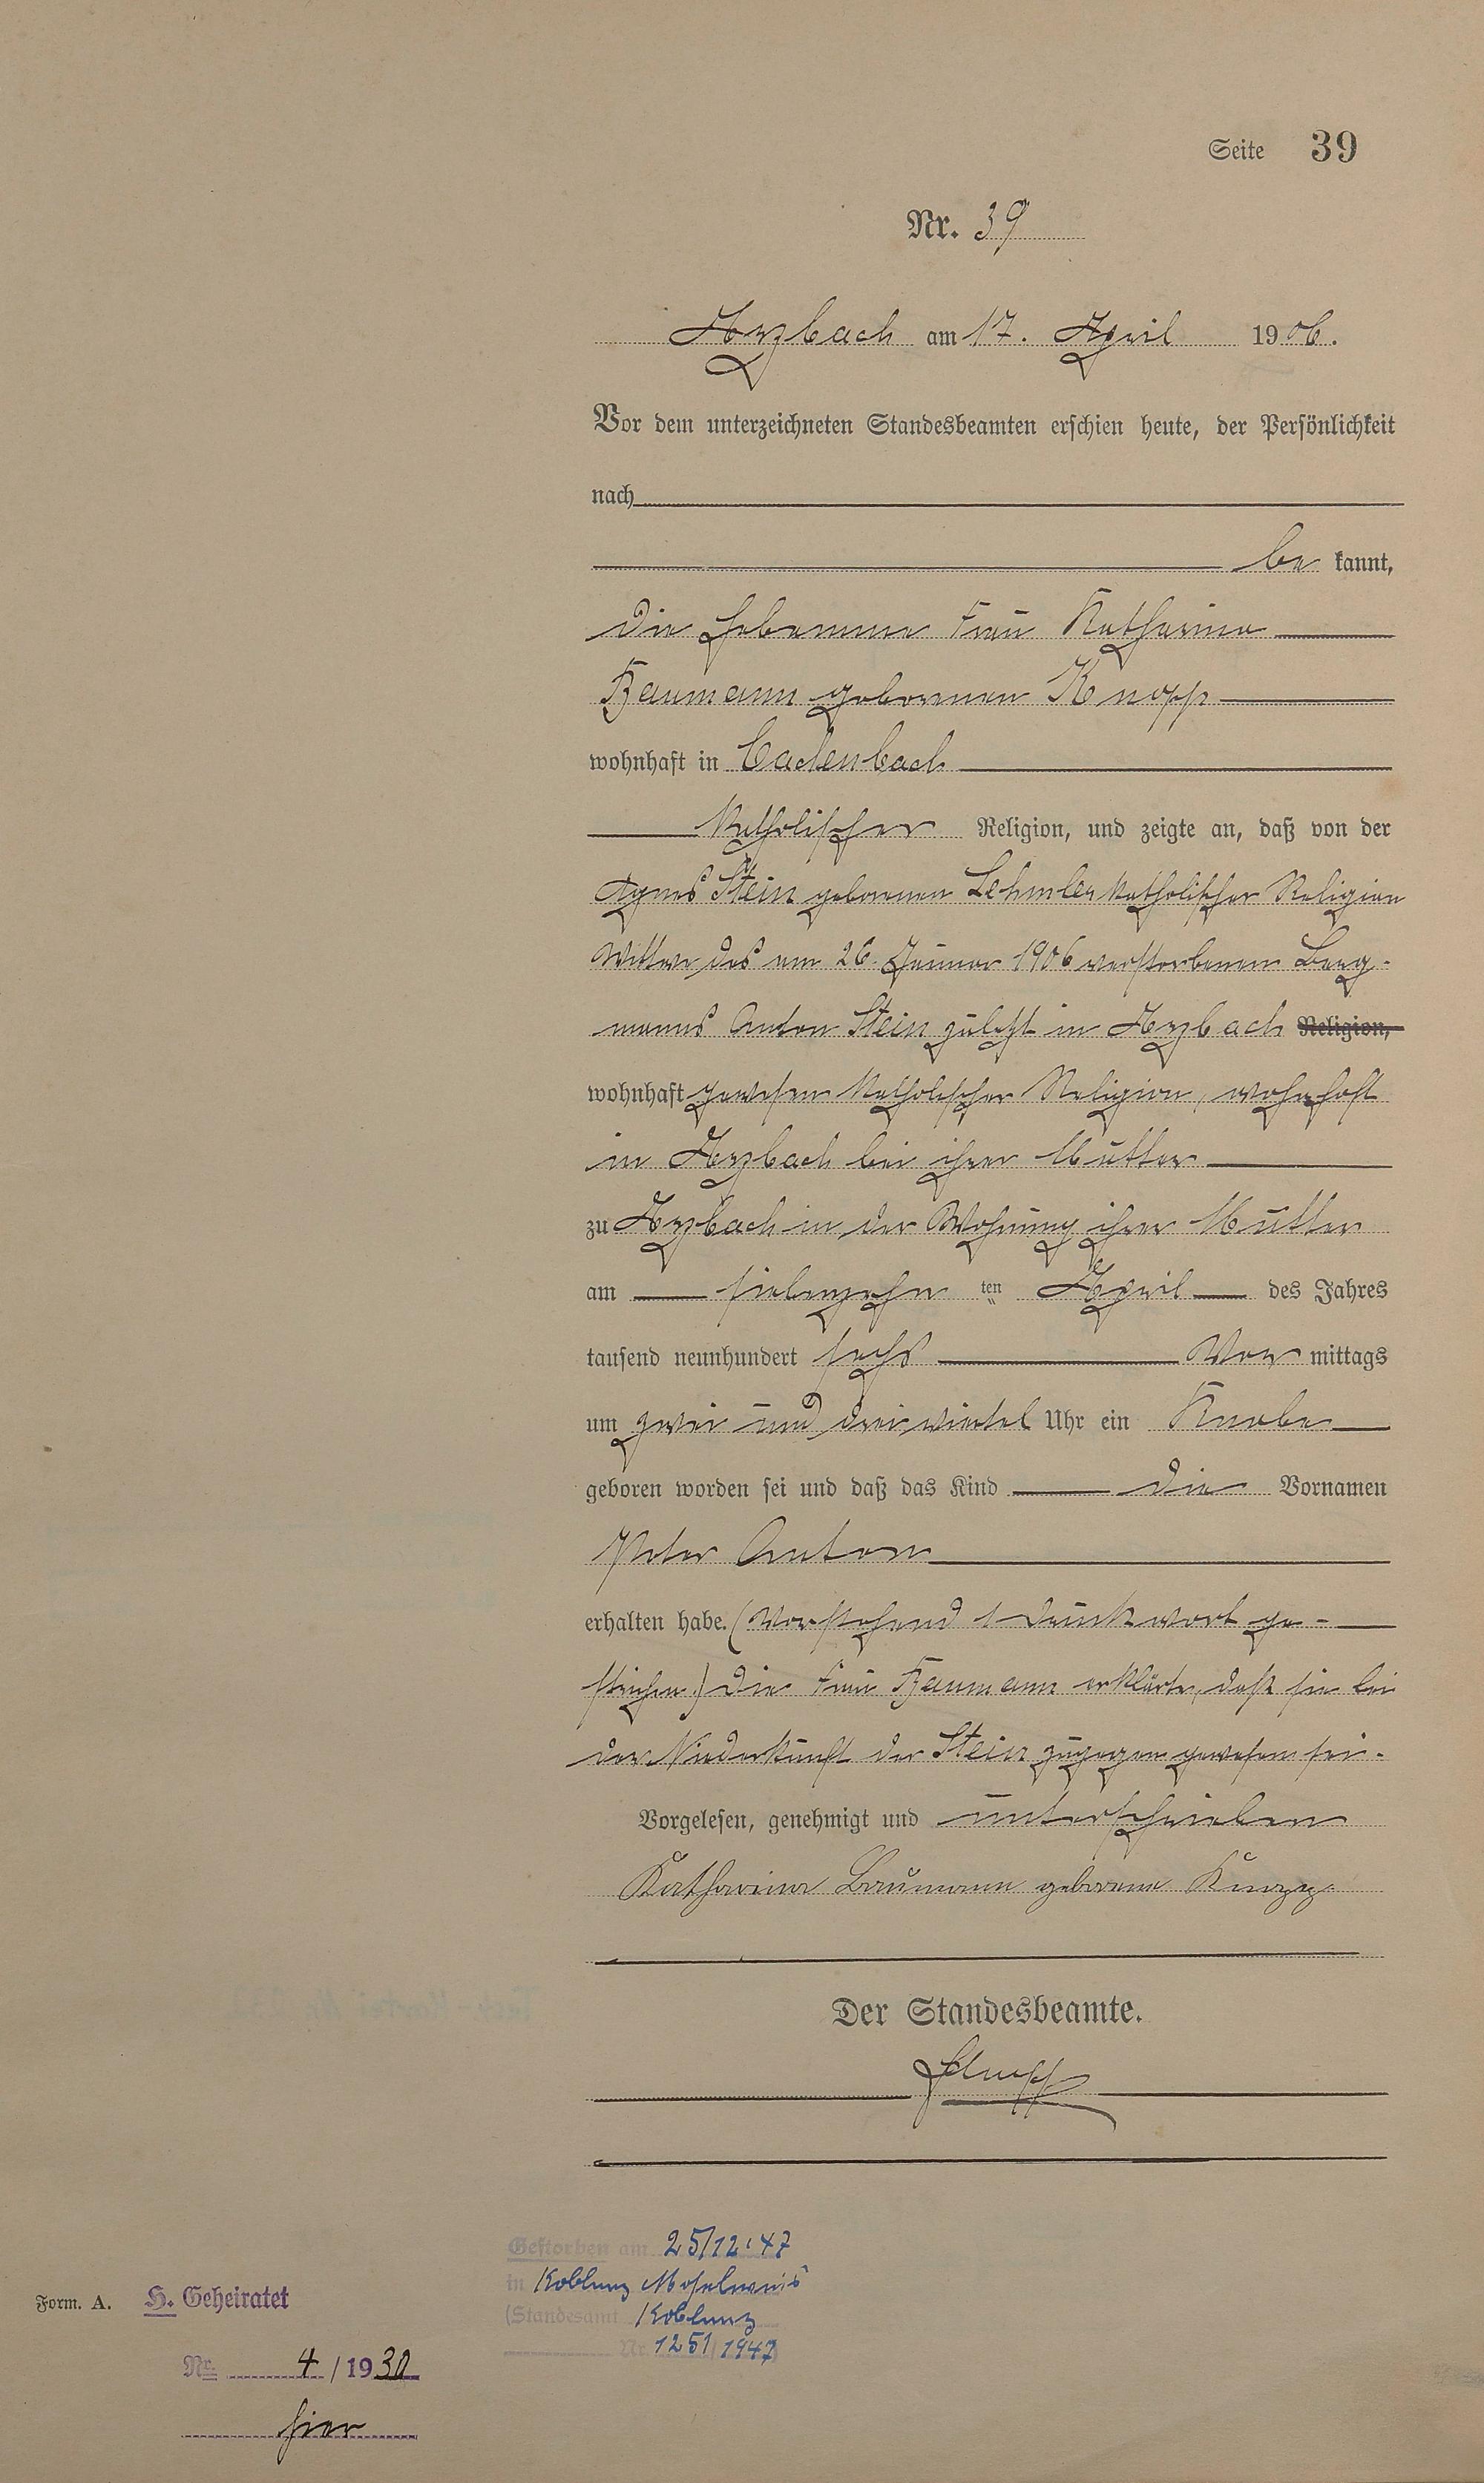 Seite 39
Nr. 39
Arzbach am 17. April 1906.
Vor dem unterzeichneten Standesbeamten erschien heute, der Persönlichkeit
nach
be kannt,
die Hebamme Frau Katharina
Baumann geborenen Knopp
wohnhaft in Cadenbach
katholischer Religion, und zeigte an, daß von der
Agnes Stein geborenen Lehmler katholischer Religion
Wittwe des am 26. Januar 1906 verstorbenen Berg-
manns Anton Stein zuletzt in Arzbach Religion,
wohnhaft gewesen katholischer Religion, wohnhaft
in Arzbach bei ihrer Mutter
zu Arzbach in der Wohnung ihrer Mutter
am siebenzehn ten April des Jahres
tausend neunhundert sechs Vor mittags
um zwei und dreiviertel Uhr ein Knabe
geboren worden sei und daß das Kind die Vornamen
Peter Anton
erhalten habe. (Vorstehend 1 Druckwort ge-
strichen.) Die Frau Baumann erklärte, daß sie bei
der Niederkunft der Stein zugegen gewesen sei.
Vorgelesen, genehmigt und unterschrieben
Katharina Baumann geborene Knopp
Der Standesbeamte.
Form. A. H. Geheiratet
Nr. 4/1930
hier
Gestorben am 25/12.47
in Koblenz Moselweis
(Standesamt Koblenz
Nr. 1251/1947